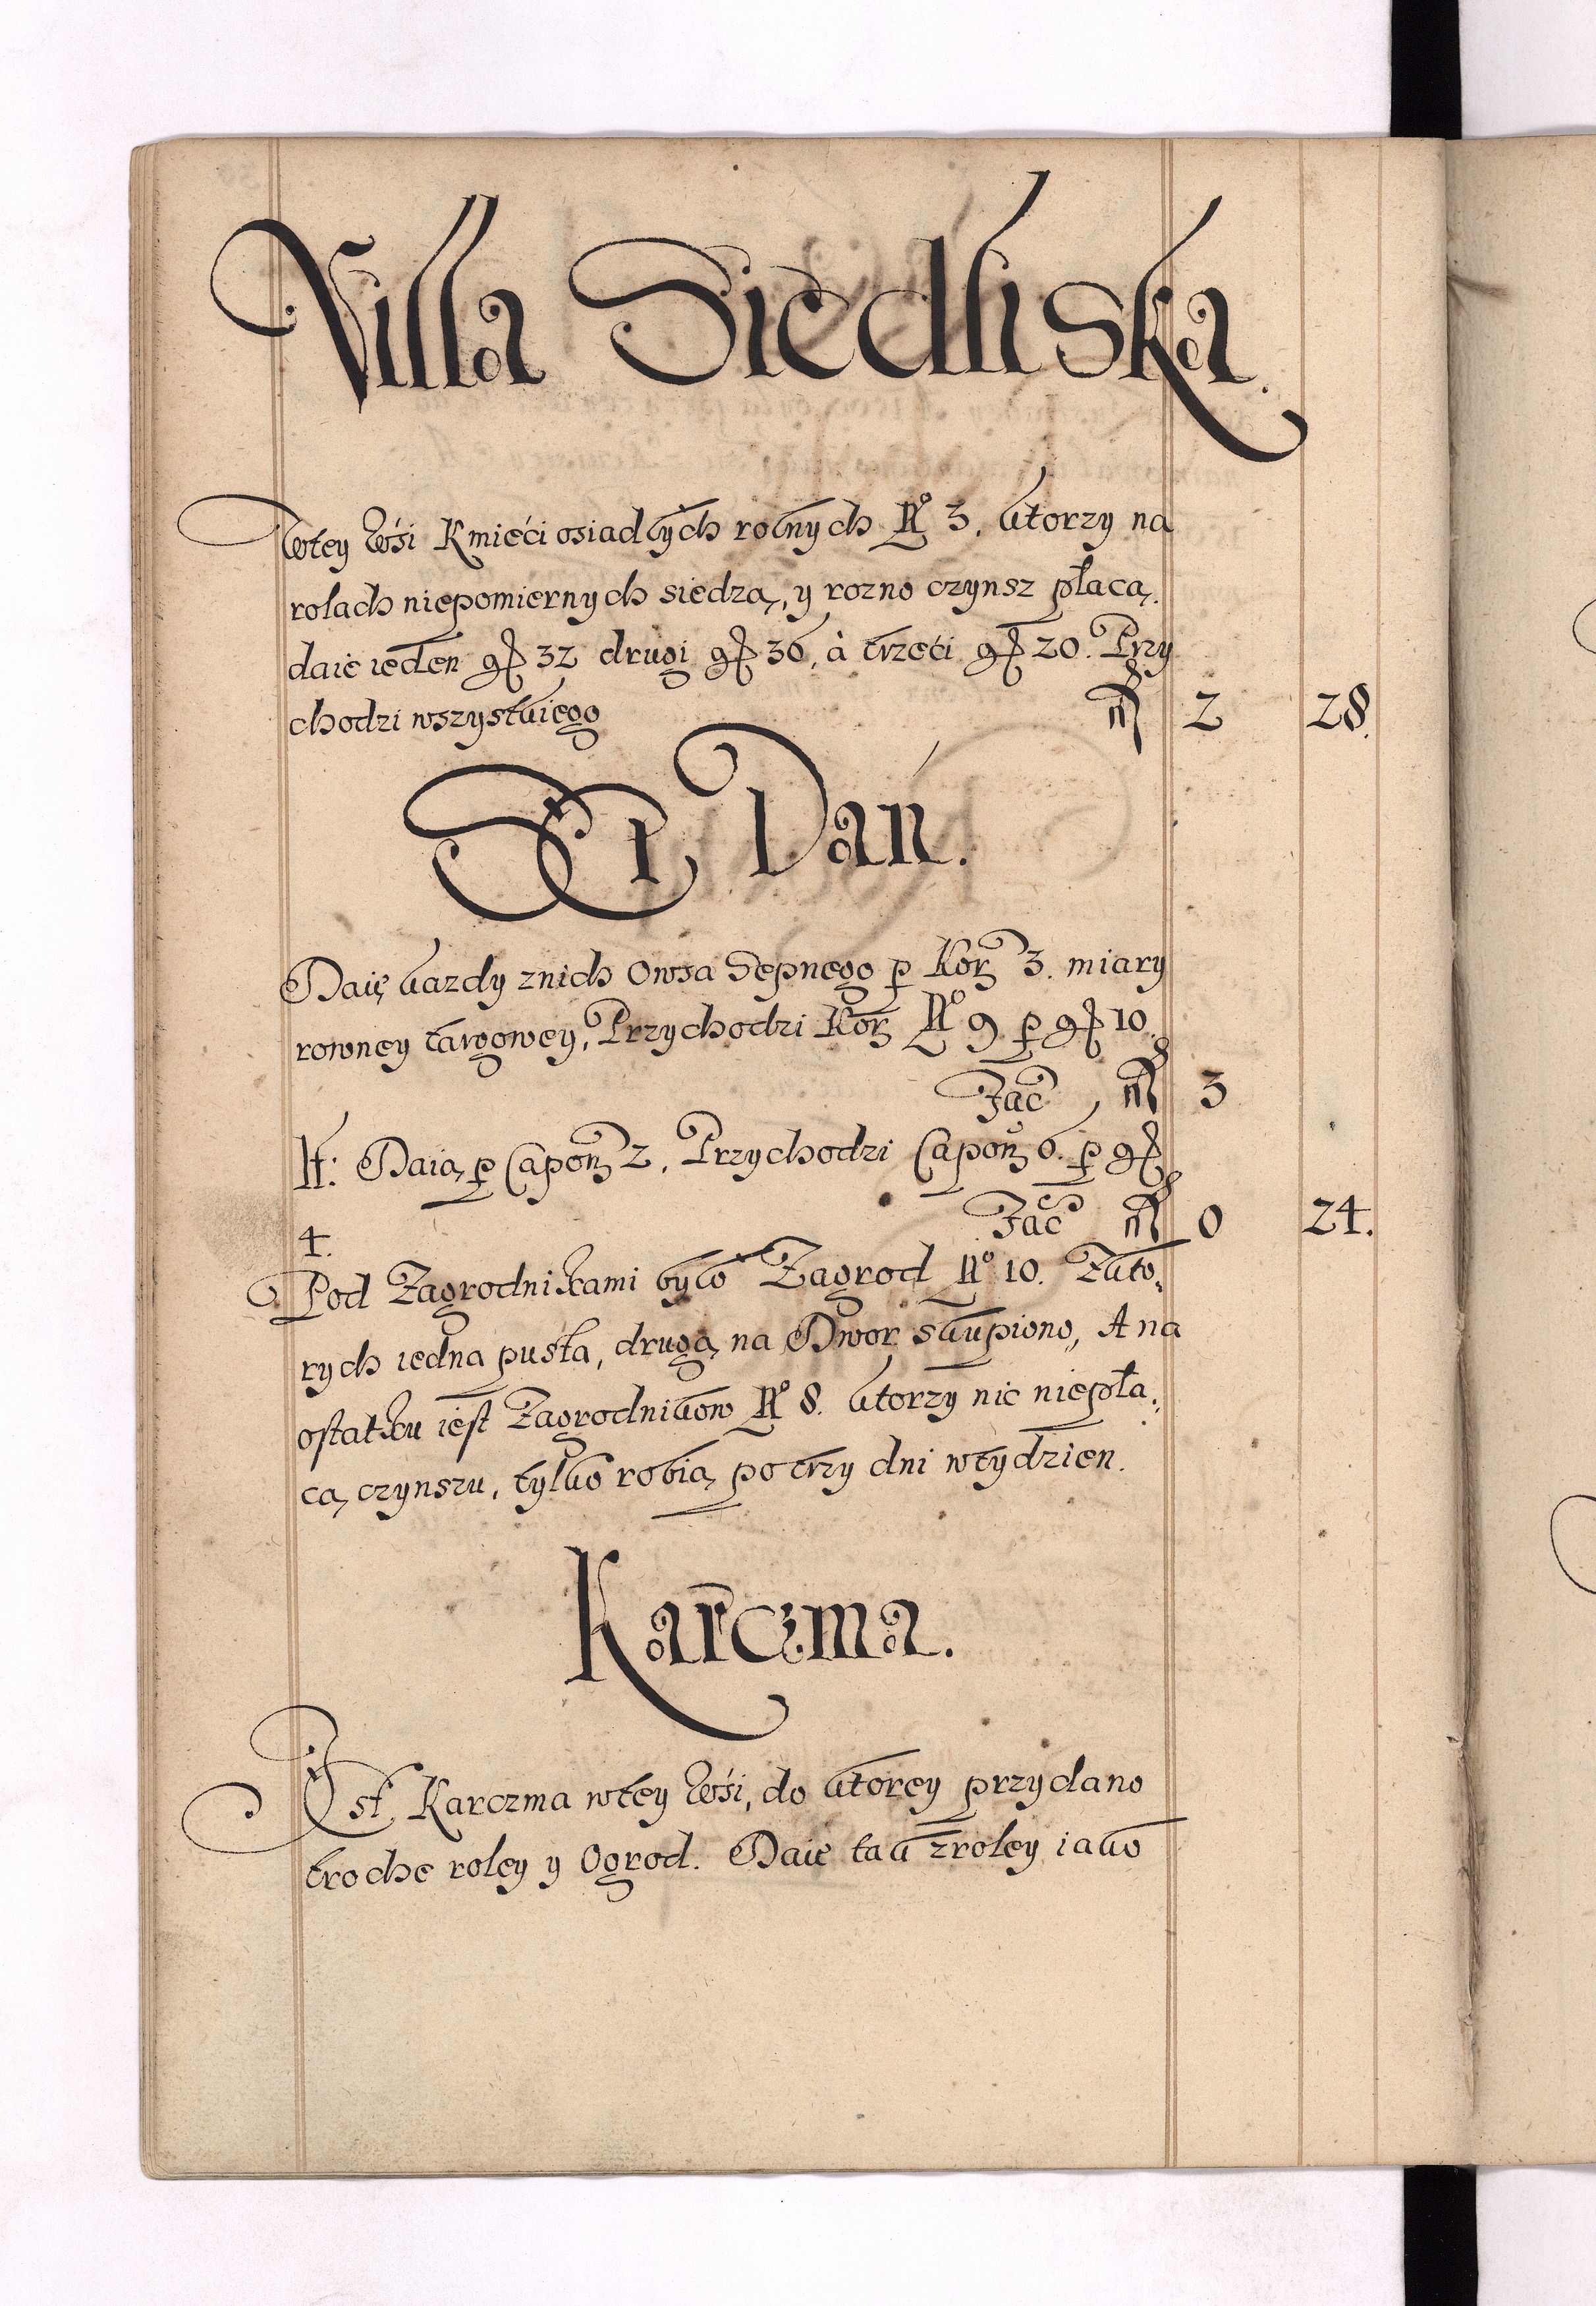 Villa Siedliska.
Wtey wśi Kmieći osiadłych rolnych No 3. ktorzy na
rolach niepomiernych siedzą, y rozno czynsz płacą.
daie ieden gr 32 drugi gr 36, à trzeći gr 20. Przy
chodzi wszystkiego fl 2 28.
Dań.
Daię kazdy znich Owsa Sepnego p Korz 3. miary
rowney targowey, Przychodzi Korz No 9 p gr 10.
Facit fl 3
It: Daią p Capon 2, Przychodzi Capon 6. p gr
4. Facit fl 0 24.
Pod Zagrodnikami było Zagrod No 10. Zkto,
rych iedna pusta, drugą na Dwor skupiono, A na
ostatku iest Zagrodnikow No 8. ktorzy nic niepła,
cą czynszu, tylko robią po trzy dni wtydzien.
Karczma.
Iest Karczma wtey wśi, do ktorey przydano
troche roley y Ogrod. Daie tak zroley iako